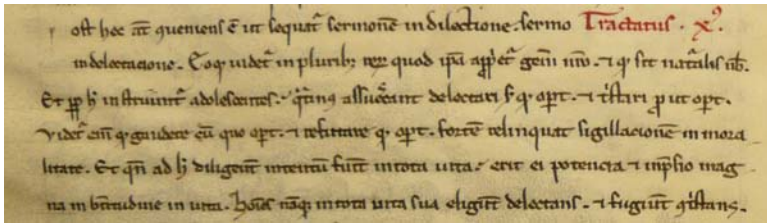 ost hec aut̄ queniens ē ut sequat̄ sermonē in dilectione. sermo Tractatus . xꝰ.
in delectacione. Eoqꝫ videt̄ in pluribꝫ rerꝫ quod ip̄a app̄et̄ geni nr̄o. ⁊ qꝫ sit nat̄alis nb̄.
Et pp̄ h̄ instruunt̄ adolescentes. q̄tinꝰ assuescant delectari s̄ qꝫ oꝑt. ⁊ t̄stari ꝓ ut oꝑt.
videt̄ em̄ qꝫ gaudere eū quo oꝑt. ⁊ refutare qꝫ oꝑt. fortē relinquat sigillacionē in mora
litate. Et qn̄ ad h̄ diligent̄ intentū fuīt in tota uita. erit ei potencia ⁊ inp̄sio mag
na in beatitudine in uita. hoīes naqꝫ in tota uita sua eligūt delectans. ⁊ fugiunt q̄tstans.